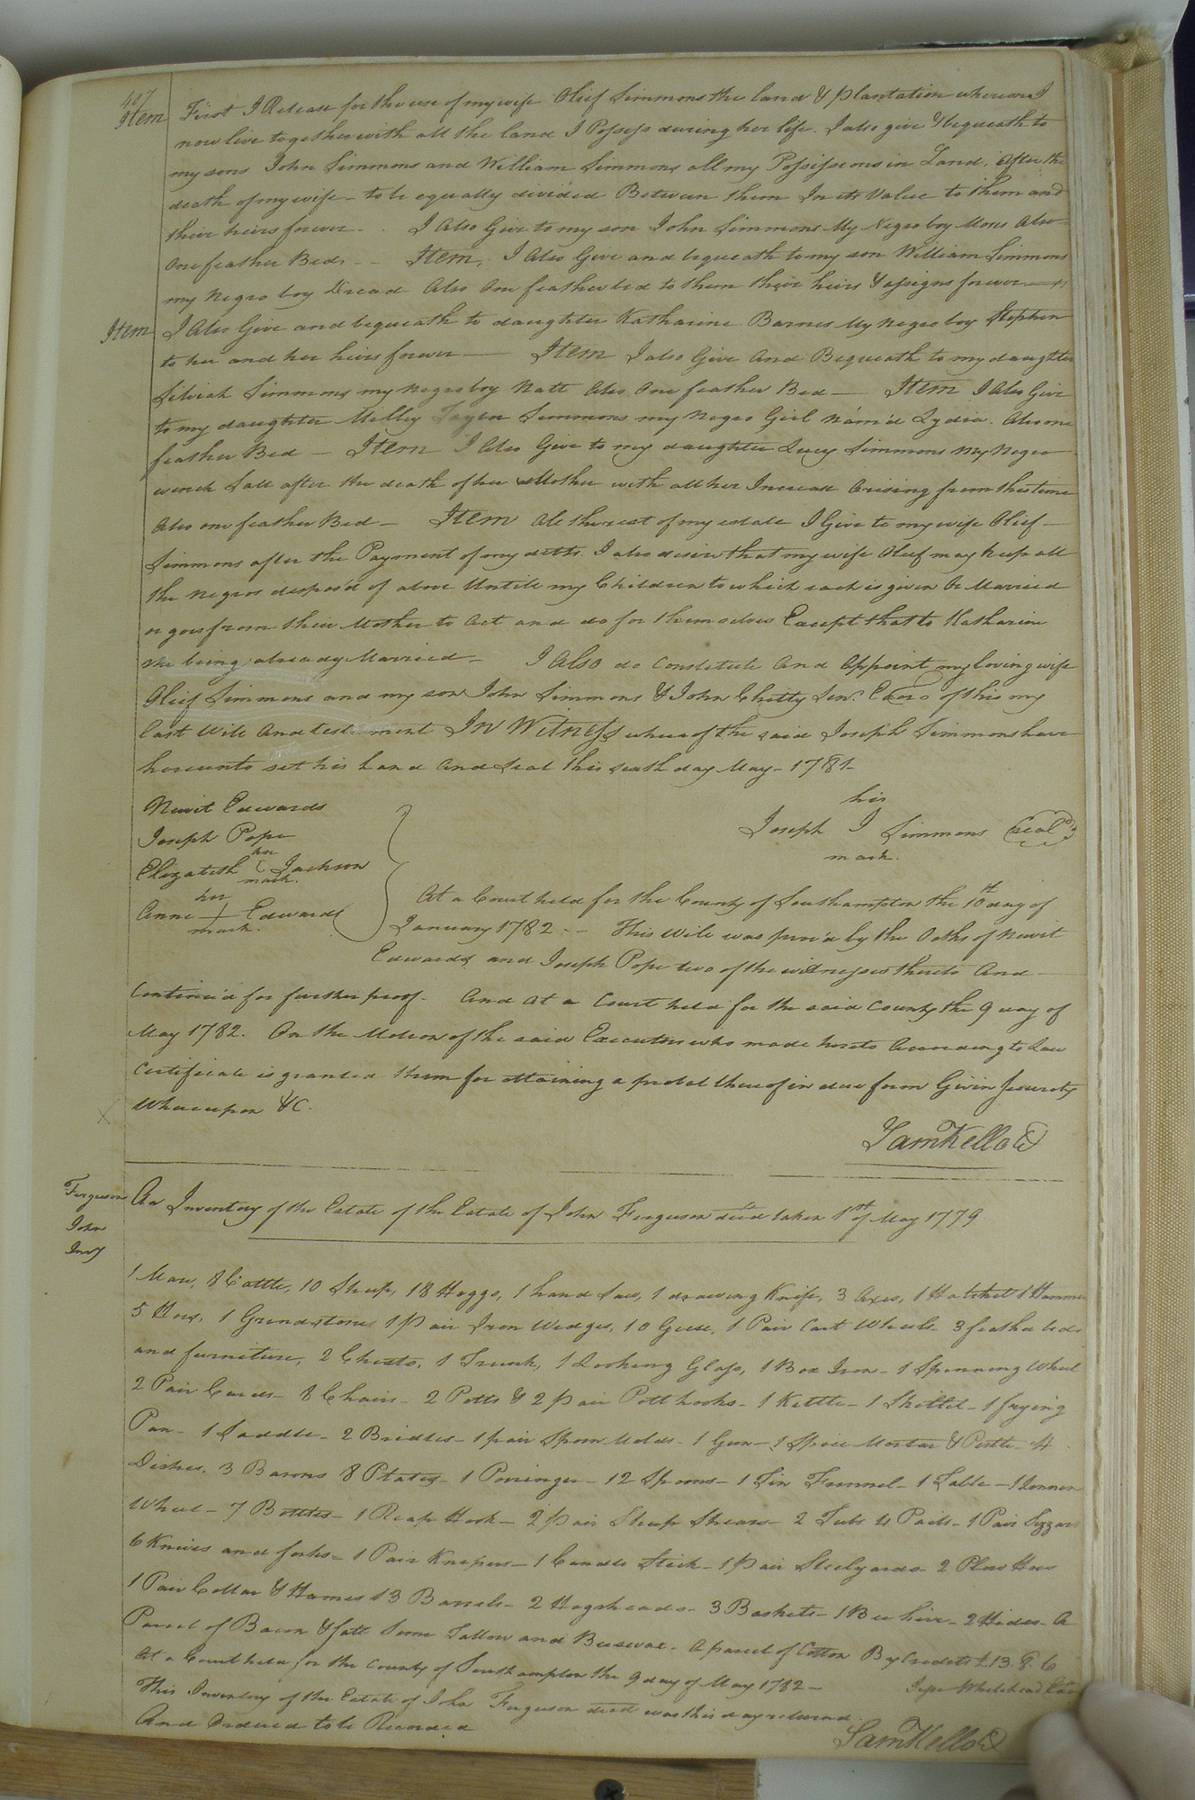 407
Item First I Release for the use of my wife Olief Simmons the land & plantation whereon I
now live together with all the land I Possess during her life. I also give & bequeath to
my sons John Simmons and William Simmons all my Possessions in Land. After the
death of my wife - to be equally divided Between them In its Value to them and
their heirs forever - . I Also Give to my son John Simmons My Negro boy Moses Also
One feather Bed. - - Item. I Also Give and bequeath to my son William Simmons
my Negro boy Dread Also One feather bed to them their heirs & assigns forever
Item I Also Give and bequeath to daughter Katharine Barnes My Negro boy Stephen
to her and her heirs forever - Item I also Give And Bequeath to my daughter
Silviah Simmons my Negro boy Natt Also One feather Bed - Item I Also Give
to my daughter Milley Simmons my Negro Girl Nam'd Lydia. Also one
feather Bed - Item I Also Give to my daughter Lucy Simmons My Negro
wench Sall after the death of her Mother with all her Increase Arising from this time
Also one feather Bed - Item All the rest of my estate I Give to my wife Olief -
Simmons after the Payment of my debts. I also desire that my wife Olief may keep all
the Negros dispos'd of above Untill my Children to which each is given Be Married
or goes from their Mother to Act and do for themselves Except that to Katharine
She being already Married - I Also do Constitute And Appoint my loving wife
Olief Simmons and my son John Simmons & John Chitty Senr. Exors of this my
last Will And testament In Witness whereof the said Joseph Simmons have
hereunto set his hand And Seal this day May - 1781
Newit Edwards
his
Joseph Pope
Joseph I Simmons (seal)
mark.
her
Elizabeth C Jackson
mark.
her
Anne + Edwards
mark.
At a Court held for the County of Southampton the 10th day of
January 1782. - This Will was prov'd by the Oaths of Newit
Edwards and Joseph Pope two of the witnesses thereto And -
Continued for further proof. And at a Court held for the said County the 9 day of
May 1782. On the Motion of the said Executors who made hereto According to Law
Certificate is granted them for obtaining a probat thereof in due form Givin Security
Whereupon &C.
Sam Kello Cl
Ferguson
John
Invy
An Inventory of the Estate of the Estate of John Ferguson decd taken 1st of May 1779
1 Mare, 8 Cattle, 10 Sheep, 18 Hoggs, 1 hand Saw, 1 drawing Knife, 3 Axes, 1 Hatchet 1 Hammer
5 Hoes, 1 Grindstones 1 pair Iron Wedges, 10 Geese, 1 Pair Cart Wheels 3 feather beds
and furniture, 2 Chests, 1 Trunk, 1 Looking Glass, 1 Box Iron - 1 Spinning Wheel
2 Pair Cards - 8 Chairs - 2 Potts & 2 pair Pott hooks - 1 Kettle - 1 Skillet - 1 frying
Pan - 1 Saddle - 2 Bridles - 1 pair Spoon Molds - 1 Gun - 1 Spice Mortar & Pestle - 4
Dishes. 3 Basons 8 Plates - 1 Poringer - 12 Spoons - 1 Tin Funnel - 1 Table - 1 Linnen
Wheel - 7 Bottles - 1 Reap Hook - 2 pair Sheep Shears - 2 Tubs 4 Pails - 1 Pair Sizzars
6 Knives and forks - 1 Pair - 1 Candle Stick - 1 pair Steelyards - 2 Plow Hoes
1 Pair Collar & Hames 13 Barrels - 2 Hogsheads - 3 Baskets - 1 Bee hive - 2 Hides - A
Parcel of Bacon & fatt Some Tallow and Beeswax - A parcel of Cotton By Credits £13.8.6
At a Court held for the County of Southampton the 9 day of May 1782 - Whitehead
This Inventory of the Estate of John Ferguson decd was this day returned.
And Ordered to be Recorded
Sam Kello Cl